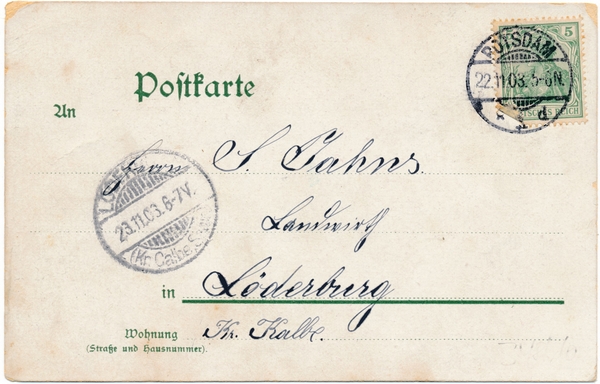 Postkarte
5
POTSDAM
22.11.03. 5-6N.
d
DEUTSCHES REICH
An
Herrn S. Jahns
Landwirth
LÖDERB
23.11.03. 6-7V.
(Kr. Calbe, S
in Löderburg
Wohnung
(Straße und Hausnummer).
Kr. Kalbe.